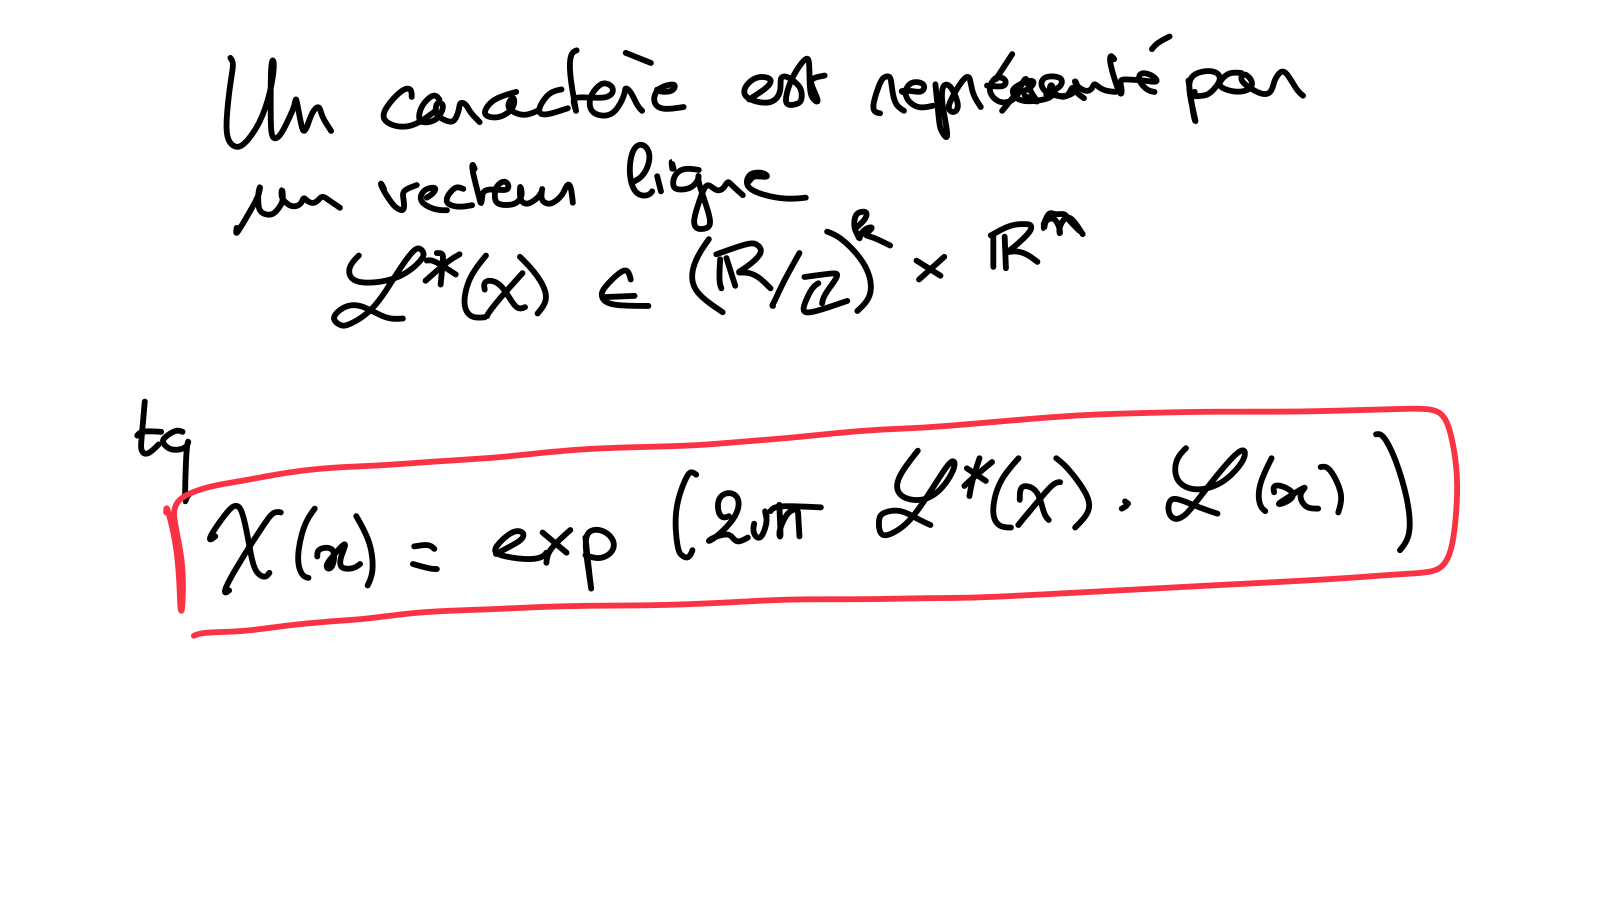 Un caractère est représenté par
un vecteur ligne
ℒ*(χ) ∈ (ℝ/ℤ)^k × ℝ^n
tq
χ(x) = exp (2iπ ℒ*(χ) · ℒ(x))